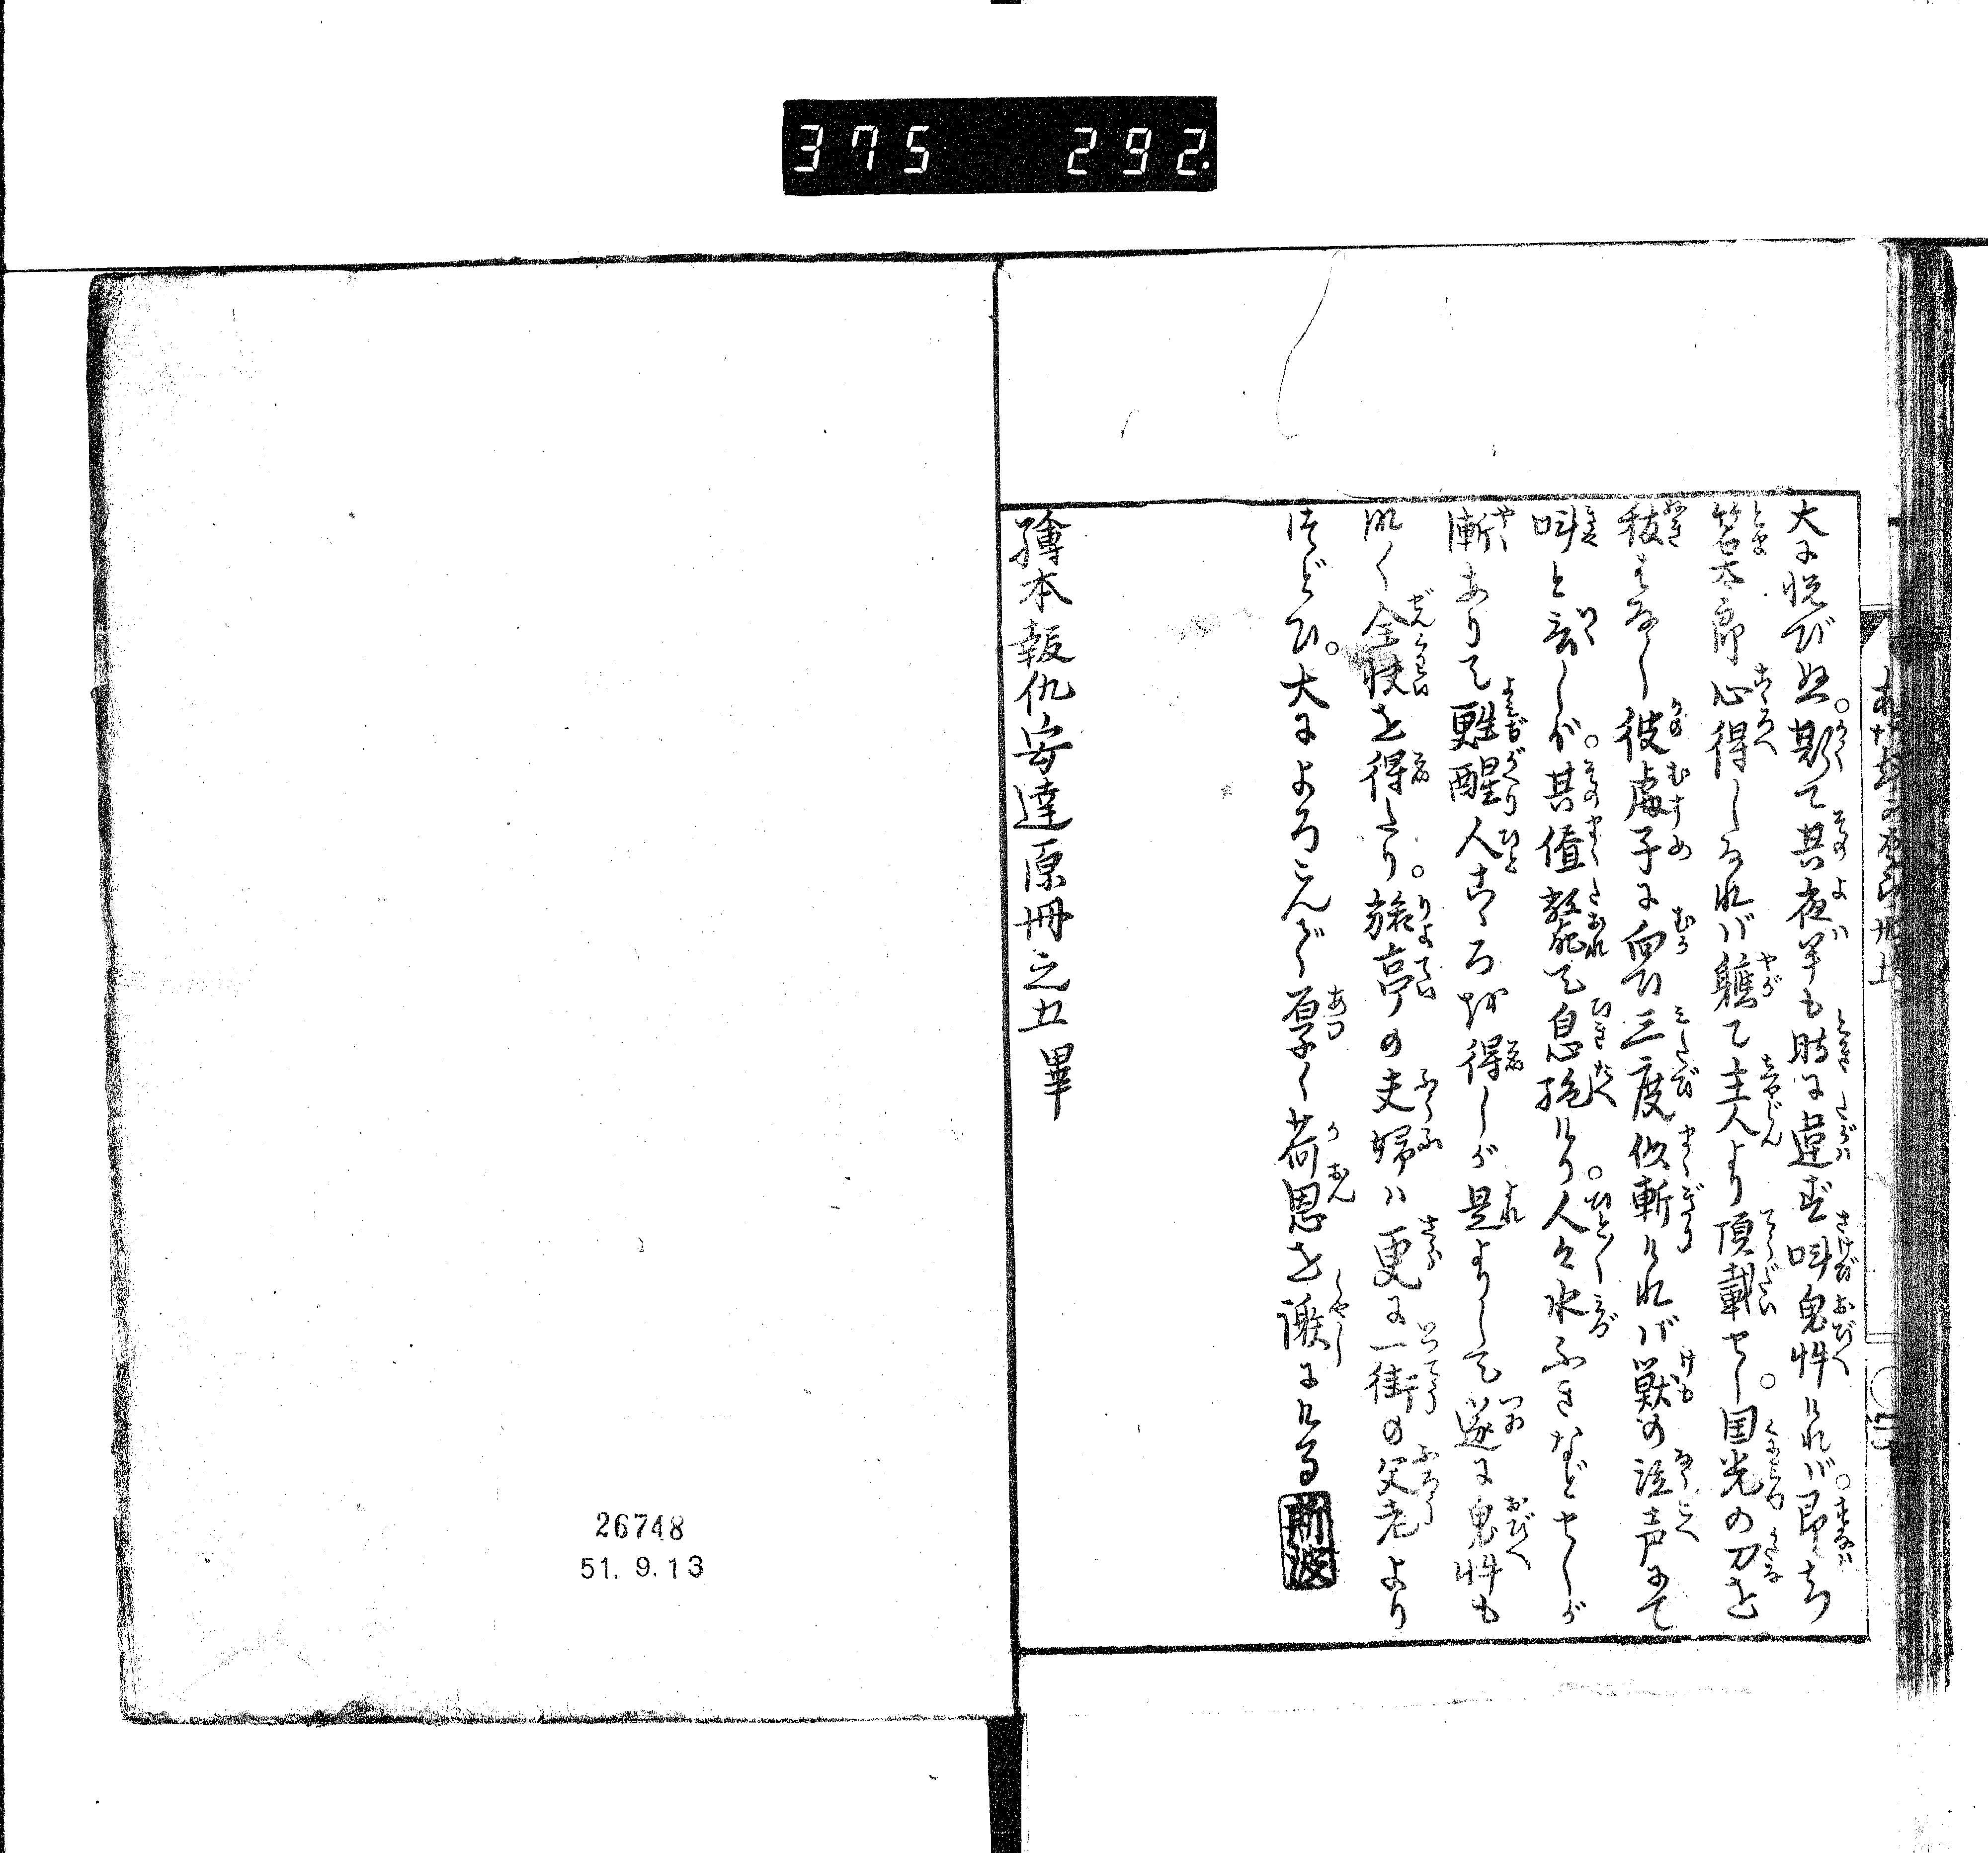 375 292
大に悦びぬ。斯て其夜半も時に違ず叫鬼𢗅ければ。即ち
笘太郎心得しなれば軈て主人より頂載せし。国光の刀を
抜はなし彼處子に向ひ三度仮斬ければ獣の泣声にて
叫と言しが。其儘斃て息絶けり。人々水ふきなどせしが
漸ありて甦醒人こゝろを得しが是よりして遂に鬼𢗅も
なく全快を得たり。旅亭の夫婦ハ更に一街の父老より
つどひ。大によろこんで厚く荷恩を謝にける
繪本報仇安達原冊之五畢
26748
51. 9. 13